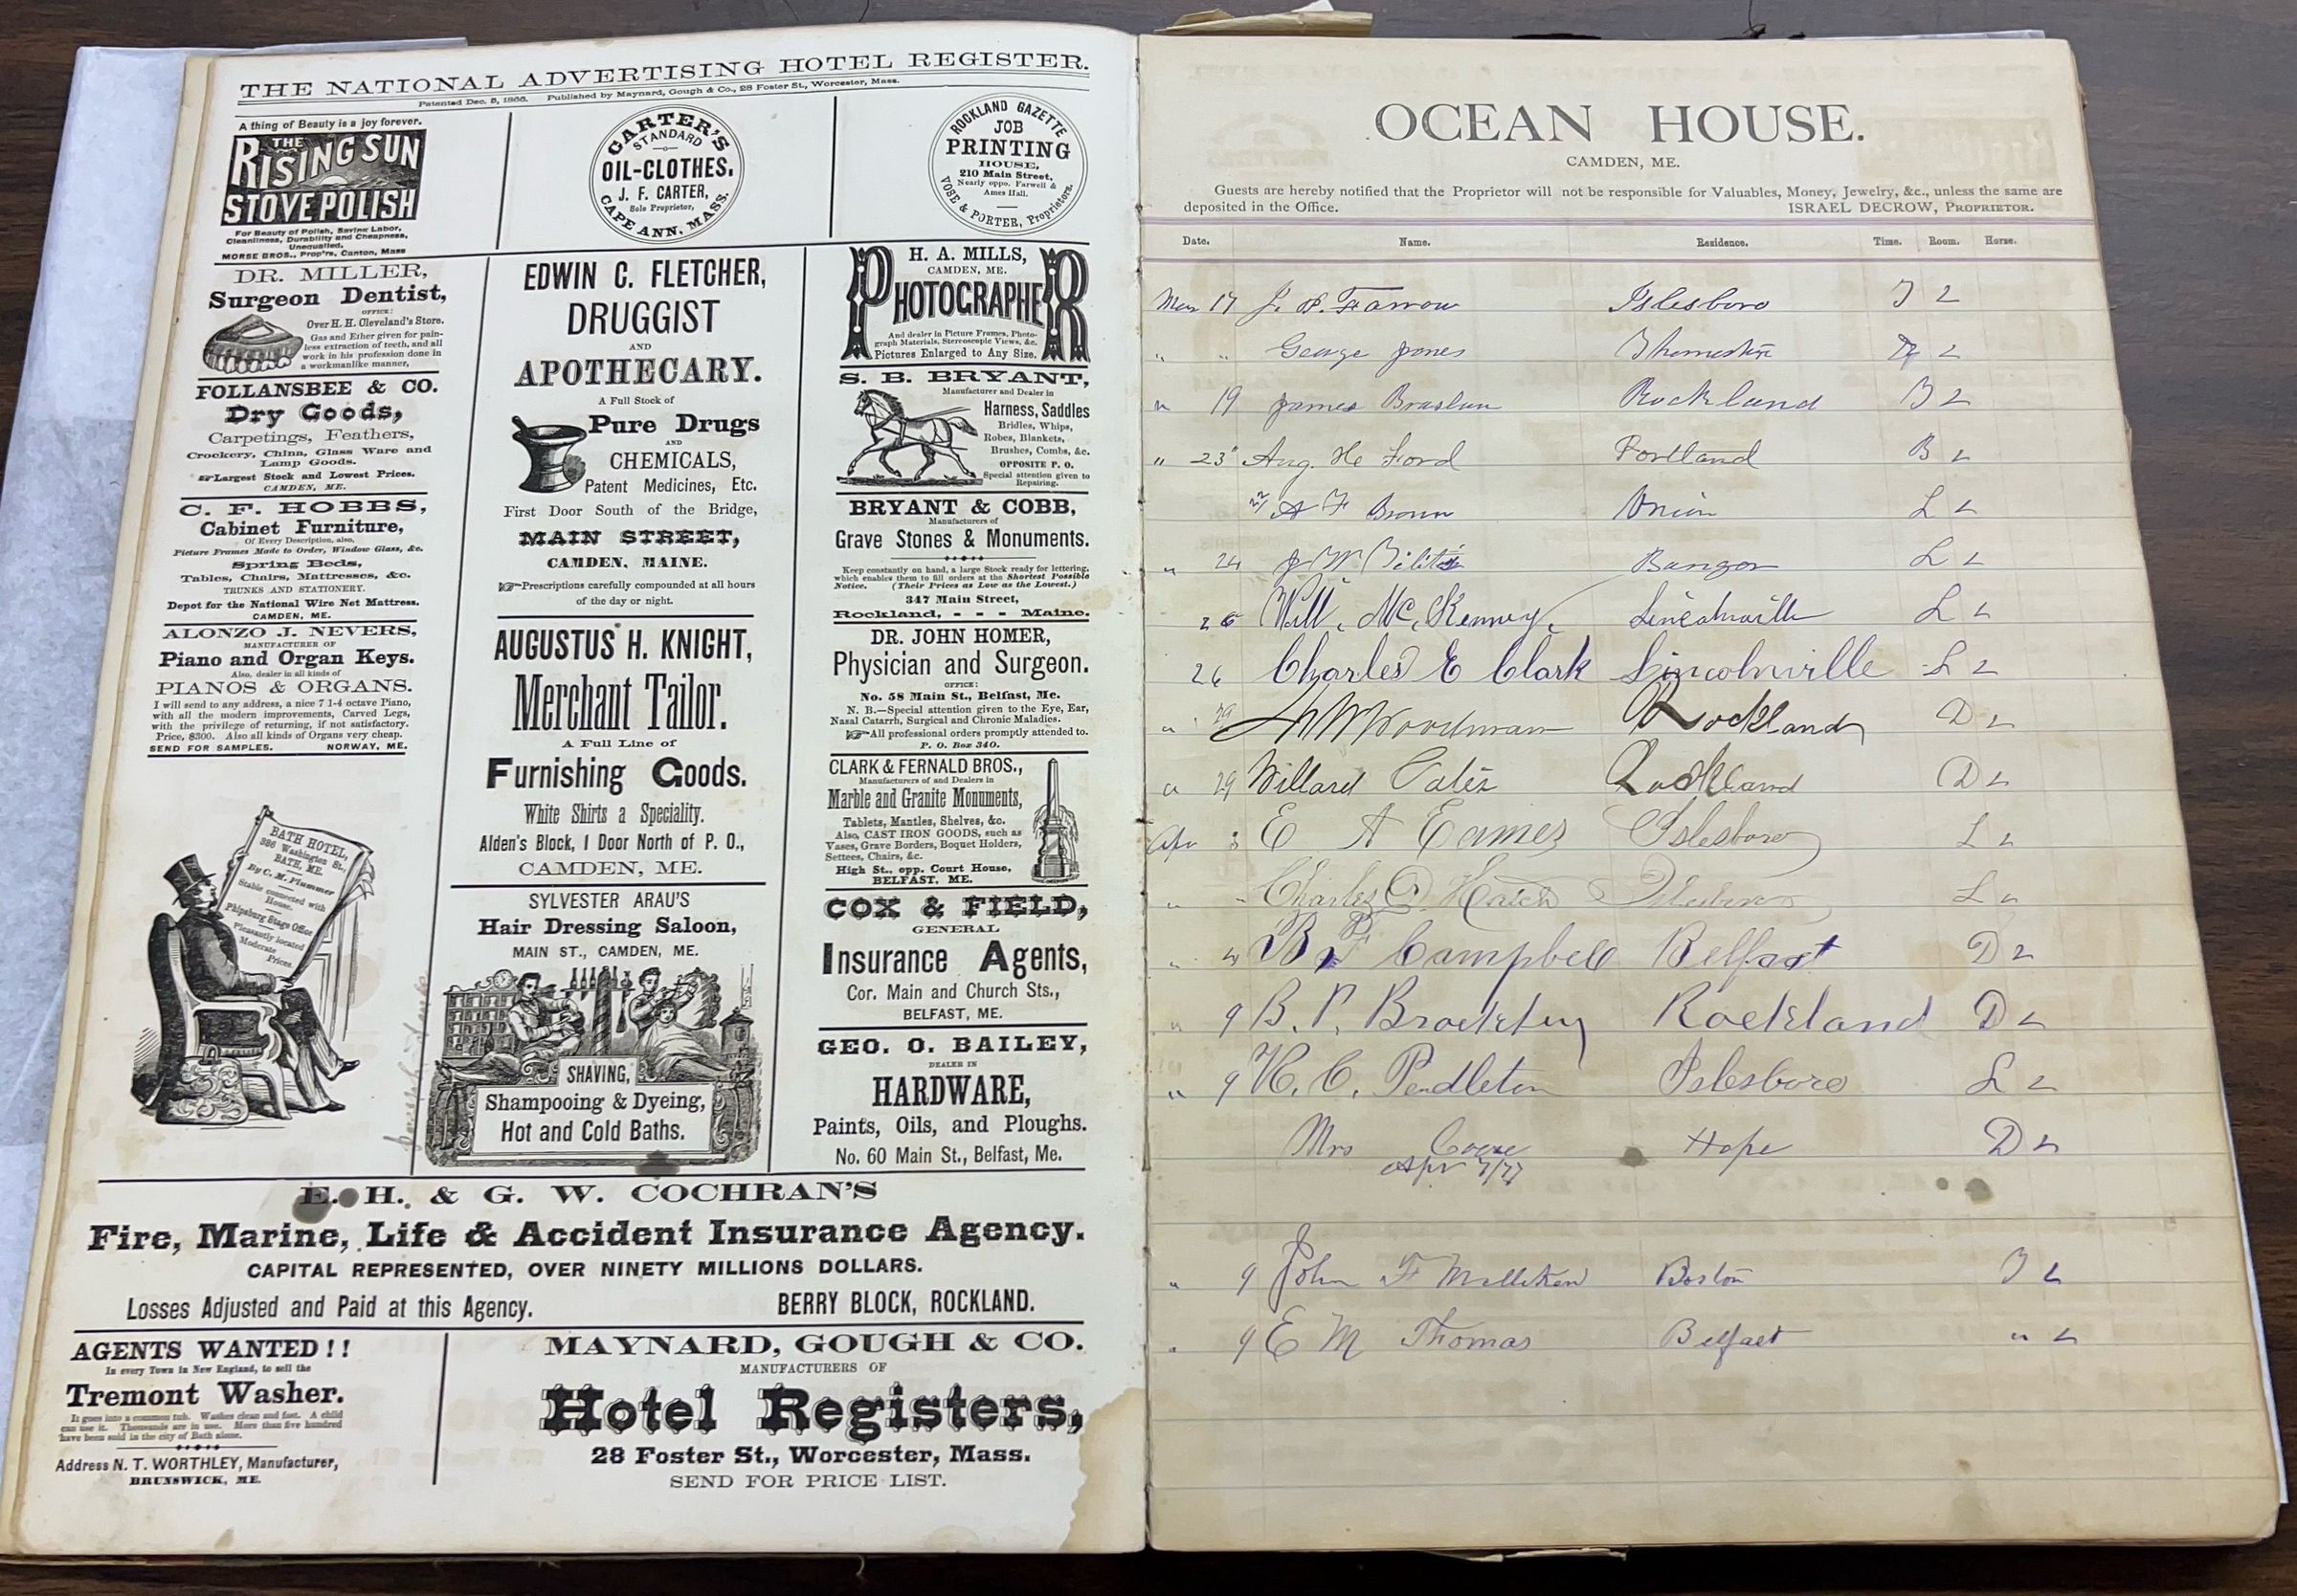 THE NATIONAL ADVERTISING HOTEL REGISTER.
Patented Dec. 5, 1866. Published by Maynard, Gough & Co., 28 Foster St., Worcester, Mass.
A thing of Beauty is a joy forever.
THE
RISING SUN
STOVE POLISH
For Beauty of Polish, Saving Labor,
Cleanliness, Durability and Cheapness,
Unequalled.
MORSE BROS., Prop'rs, Canton, Mass
CARTER'S
STANDARD
OIL-CLOTHES,
J. F. CARTER,
Sole Proprietor,
CAPE ANN, MASS.
ROCKLAND GAZETTE
JOB
PRINTING
HOUSE,
210 Main Street,
Nearly oppo. Farwell &
Ames Hall.
VOSE & PORTER, Proprietors.
DR. MILLER,
Surgeon Dentist,
OFFICE:
Over H. H. Cleveland's Store.
Gas and Ether given for pain-
less extraction of teeth, and all
work in his profession done in
a workmanlike manner,
FOLLANSBEE & CO.
Dry Goods,
Carpetings, Feathers,
Crockery, China, Glass Ware and
Lamp Goods.
☞Largest Stock and Lowest Prices.
CAMDEN, ME.
C. F. HOBBS,
Cabinet Furniture,
Of Every Description, also,
Picture Frames Made to Order, Window Glass, &c.
Spring Beds,
Tables, Chairs, Mattresses, &c.
TRUNKS AND STATIONERY.
Depot for the National Wire Net Mattress.
CAMDEN, ME.
ALONZO J. NEVERS,
MANUFACTURER OF
Piano and Organ Keys.
Also, dealer in all kinds of
PIANOS & ORGANS.
I will send to any address, a nice 7 1-4 octave Piano,
with all the modern improvements, Carved Legs,
with the privilege of returning, if not satisfactory.
Price, $300. Also all kinds of Organs very cheap.
SEND FOR SAMPLES. NORWAY, ME.
BATH HOTEL,
386 Washington St.,
BATH, ME.
By C. M. Plummer
Stable connected with
House.
Phipsburg Stage Office
Pleasantly located
Moderate
Prices.
EDWIN C. FLETCHER,
DRUGGIST
AND
APOTHECARY.
A Full Stock of
Pure Drugs
AND
CHEMICALS,
Patent Medicines, Etc.
First Door South of the Bridge,
MAIN STREET,
CAMDEN, MAINE.
☞Prescriptions carefully compounded at all hours
of the day or night.
AUGUSTUS H. KNIGHT,
Merchant Tailor.
A Full Line of
Furnishing Goods.
White Shirts a Speciality.
Alden's Block, 1 Door North of P. O.,
CAMDEN, ME.
SYLVESTER ARAU'S
Hair Dressing Saloon,
MAIN ST., CAMDEN, ME.
SHAVING,
Shampooing & Dyeing,
Hot and Cold Baths.
H. A. MILLS,
CAMDEN, ME.
PHOTOGRAPHER
And dealer in Picture Frames, Photo-
graph Materials, Stereoscopic Views, &c.
Pictures Enlarged to Any Size.
S. B. BRYANT,
Manufacturer and Dealer in
Harness, Saddles
Bridles, Whips,
Robes, Blankets,
Brushes, Combs, &c.
OPPOSITE P. O.
Special attention given to
Repairing.
BRYANT & COBB,
Manufacturers of
Grave Stones & Monuments.
Keep constantly on hand, a large Stock ready for lettering,
which enables them to fill orders at the Shortest Possible
Notice. (Their Prices as Low as the Lowest.)
347 Main Street,
Rockland, - - - Maine.
DR. JOHN HOMER,
Physician and Surgeon.
OFFICE:
No. 58 Main St., Belfast, Me.
N. B.—Special attention given to the Eye, Ear,
Nasal Catarrh, Surgical and Chronic Maladies.
☞All professional orders promptly attended to.
P. O. Box 340.
CLARK & FERNALD BROS.,
Manufacturers of and Dealers in
Marble and Granite Monuments,
Tablets, Mantles, Shelves, &c.
Also, CAST IRON GOODS, such as
Vases, Grave Borders, Boquet Holders,
Settees, Chairs, &c.
High St., opp. Court House,
BELFAST, ME.
COX & FIELD,
GENERAL
Insurance Agents,
Cor. Main and Church Sts.,
BELFAST, ME.
GEO. O. BAILEY,
DEALER IN
HARDWARE,
Paints, Oils, and Ploughs.
No. 60 Main St., Belfast, Me.
E. H. & G. W. COCHRAN'S
Fire, Marine, Life & Accident Insurance Agency.
CAPITAL REPRESENTED, OVER NINETY MILLIONS DOLLARS.
Losses Adjusted and Paid at this Agency. BERRY BLOCK, ROCKLAND.
AGENTS WANTED!!
In every Town in New England, to sell the
Tremont Washer.
It goes into a common tub. Washes clean and fast. A child
can use it. Thousands are in use. More than five hundred
have been sold in the city of Bath alone.
Address N. T. WORTHLEY, Manufacturer,
BRUNSWICK, ME.
MAYNARD, GOUGH & CO.
MANUFACTURERS OF
Hotel Registers,
28 Foster St., Worcester, Mass.
SEND FOR PRICE LIST.
OCEAN HOUSE.
CAMDEN, ME.
Guests are hereby notified that the Proprietor will not be responsible for Valuables, Money, Jewelry, &c., unless the same are
deposited in the Office. ISRAEL DECROW, PROPRIETOR.
Date. Name. Residence. Time. Room. Horse.
Mar 17 J. P. Farrow Islesboro
" " George Jones
" 19 James Braslow Rockland B
" 23 Aug. H Ford Portland B
A F Brown Union L
" 24 J W Bangor L
Will. Mc. Kenney, Lincolnville L
26 Charles E Clark Lincolnville L
" 29 Woodman Rockland D
" 29 Willard Rockland D
Apr 3 E A Eames Islesboro L
" " Charles D. Hatch Islesboro L
" B F Campbell Belfast D
" 9 B. P. Rockland D
" 9 H. C. Pendleton Islesboro L
Mrs Hope D
Apr 7/77
" 9 John F Milliken Boston
" 9 E M Thomas Belfast "